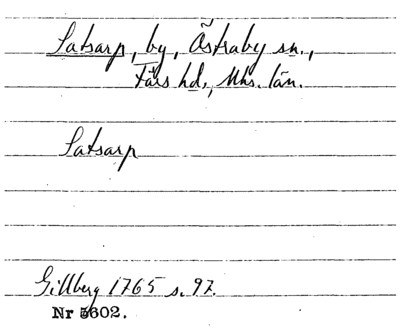 Satsarp, by, Östraby sn.,
Färs hd., Mhs. län.
Satsarp
Gillberg 1765 s. 97.
Nr 5602.